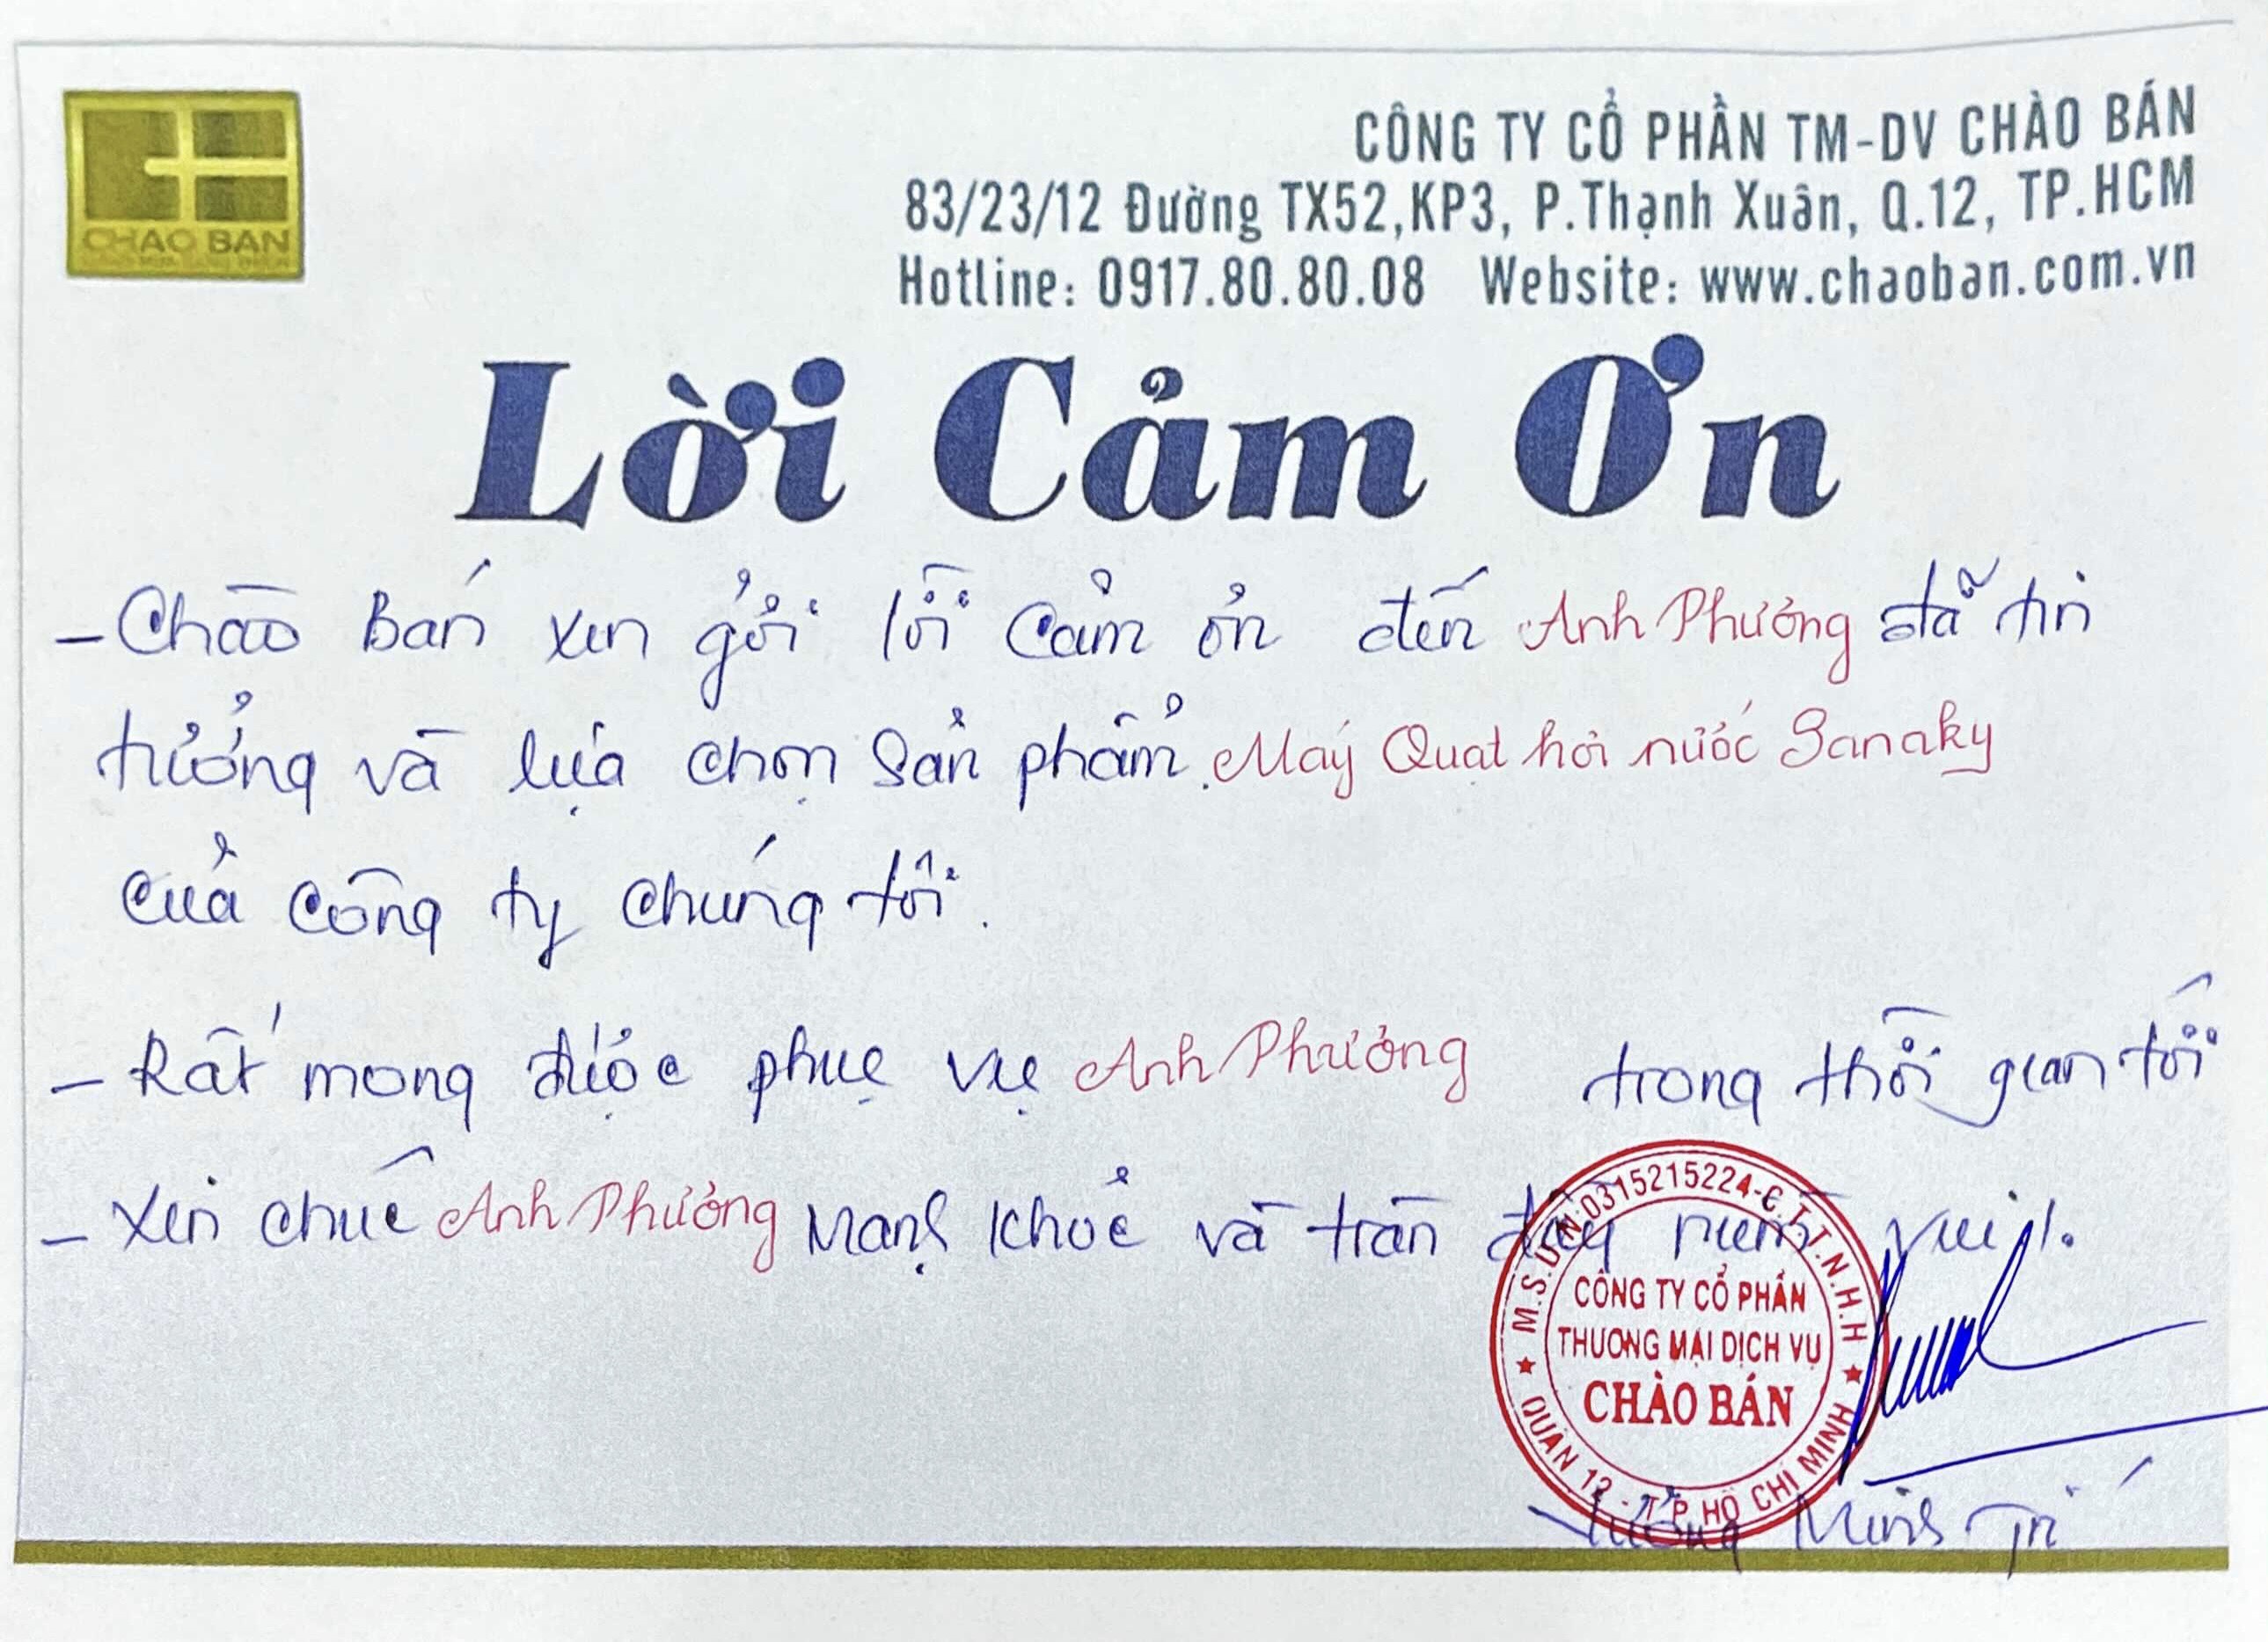 CHAO BAN
CÔNG TY CỔ PHẦN TM-DV CHÀO BÁN
83/23/12 Đường TX52,KP3, P.Thạnh Xuân, Q.12, TP.HCM
Hotline: 0917.80.80.08 Website: www.chaoban.com.vn
Lời Cảm Ơn
- Chào Bán xin gửi lời cảm ơn đến Anh Phương đã tin
tưởng và lựa chọn sản phẩm. Máy Quạt hơi nước Sanaky
của công ty chúng tôi.
- Rất mong được phục vụ Anh Phương trong thời gian tới
- Xin chúc Anh Phương mạnh khoẻ và tràn đầy niềm vui./.
M.S.D.N:0315215224-C.T.T.N.H.H
CÔNG TY CỔ PHẦN
THƯƠNG MẠI DỊCH VỤ
CHÀO BÁN
QUẬN 12 - T.P HỒ CHÍ MINH
Minh Trí